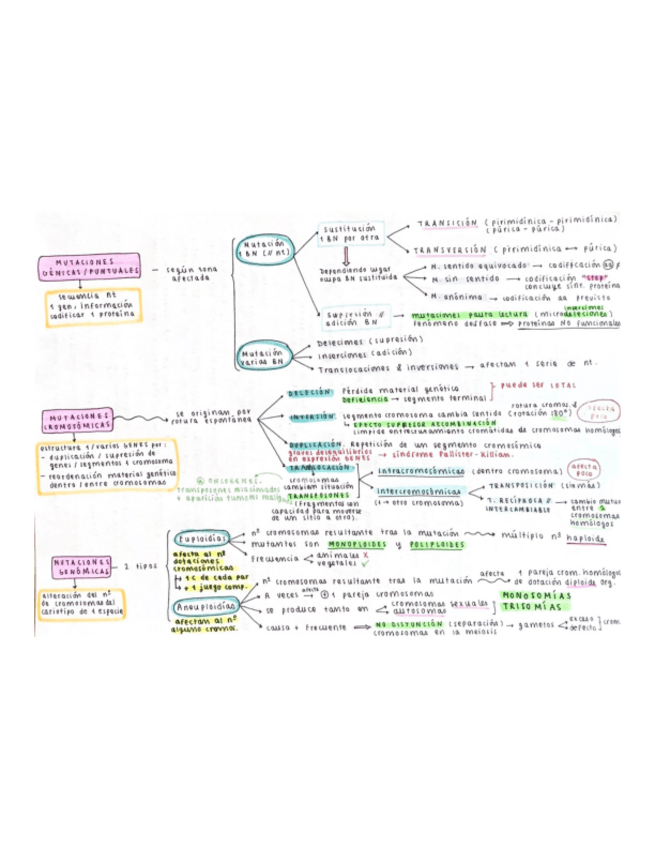 MUTACIONES
GÉNICAS / PUNTUALES
secuencia nt
1 gen, información
codificar 1 proteína
según zona
afectada
Mutación
1 BN (1 nt)
Sustitución
1 BN por otra
TRANSICIÓN (pirimidínica - pirimidínica)
(púrica - púrica)
TRANSVERSIÓN (pirimidínica ↔ púrica)
Dependiendo lugar
ocupa BN sustituida
M. sentido equivocado → codificación aa ≠
M. sin sentido → codificación "stop"
concluye sínt. proteína
M. anónima → codificación aa previsto
Supresión //
adición BN
mutaciones pauta lectura (microdeleciones)
inserciones
fenómeno desfase ⇒ proteínas no funcionales
Mutación
varias BN
Deleciones (supresión)
Inserciones (adición)
Translocaciones & inversiones → afectan 1 serie de nt.
MUTACIONES
CROMOSÓMICAS
estructura 1/varios GENES por:
- duplicación / supresión de
genes/segmentos 1 cromosoma
- reordenación material genético
dentro/entre cromosomas
se originan por
rotura espontánea
DELECIÓN. Pérdida material genético
Deficiencia → segmento terminal
puede ser LETAL
INVERSIÓN: segmento cromosoma cambia sentido (rotación 180º)
rotura cromos. &
afecta
poco
EFECTO SUPRESOR RECOMBINACIÓN
(impide entrecruzamiento cromátidas de cromosomas homólogos
DUPLICACIÓN. Repetición de un segmento cromosómico
graves desequilibrios
en expresión GENES → síndrome Pallister-Killian.
TRANSLOCACIÓN
cromosomas
cambian situación
TRANSPOSONES
(Fragmentos con
capacidad para moverse
de un sitio a otro).
⊕ ONCOGENES.
transposones relacionados
v aparición tumores
Intracromosómicas (dentro cromosoma)
afecta
poco
Intercromosómicas
(1 → otro cromosoma)
TRANSPOSICIÓN
T. RECÍPROCA //
INTERCAMBIABLE
cambio mutuo
entre 2
cromosomas
homólogos
MUTACIONES
GENÓMICAS
alteración del nº
de cromosomas del
cariotipo de 1 especie
2 tipos
Euploidías
afecta al nº
dotaciones
cromosómicas
+ 1 c de cada par
+ 1 juego comp.
nº cromosomas resultante tras la mutación → múltiplo nº haploide
mutantes son MONOPLOIDES y POLIPLOIDES
Frecuencia < animales X
vegetales ✓
Aneuploidías
afectan al nº
alguno cromos.
nº cromosomas resultante tras la mutación
afecta
1 pareja crom. homólogos
de dotación diploide org.
A veces → afecta ⊕ 1 pareja cromosomas
se produce tanto en < cromosomas sexuales
autosomas
MONOSOMÍAS
TRISOMÍAS
causa + frecuente ⇒ NO DISYUNCIÓN (separación) → gametos < exceso
defecto ] crom
cromosomas en la meiosis